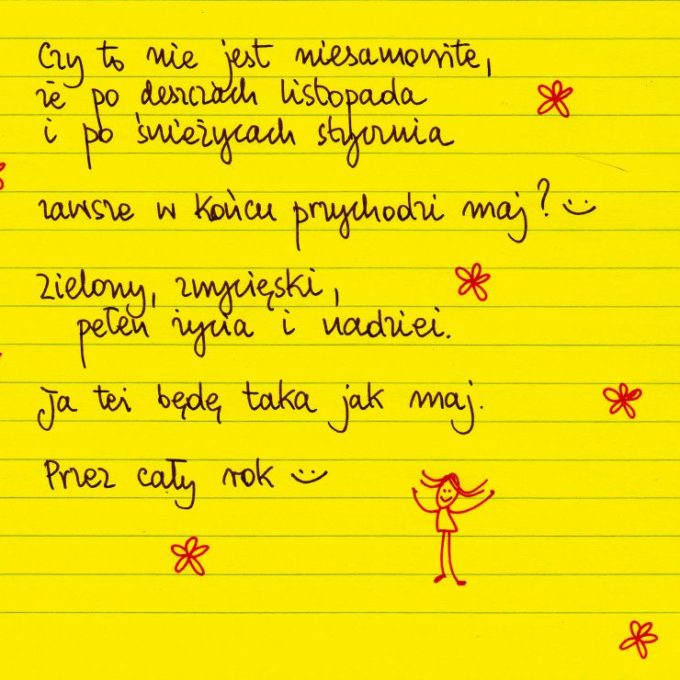 Czy to nie jest niesamowite,
że po deszczach listopada
i po śnieżycach stycznia
zawsze w końcu przychodzi maj? :)
Zielony, zwycięski,
pełen życia i nadziei.
Ja też będę taka jak maj.
Przez cały rok :)